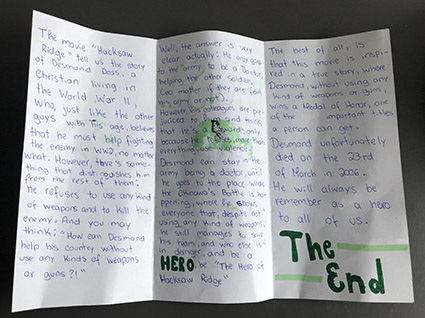 The movie "Hacksaw
Ridge" tell us the story
of Desmond Doss, a
Christian living in
the World War II,
Who, just like the other
guys with his age, believes
that he must help fighting
the enemy in WW2, no matter
what. However, there's some-
thing that distinguishes him
from the rest of them:
he refuses to use any kind
of weapons and to kill the
enemy. And you may
think: "How can Desmond
help his country without
use any kinds of weapons
or guns?!"
Well, the answer is very
clear actually: He only goes
to the army to be a Doctor,
helping the other soldiers
(no matter if they are from
his army or not).
However, his colleagues are pre-
to think
that he's only
because he more than
everything use violence.
Desmond can stay the
army being a doctor, until
he goes to the place where
the Okinawa's Battle is ha-
ppening, where he shows
everyone that, despite not
using any kind of weapons,
he still manages to save
his team, and who else is
in danger, and be a
HERO, be "The Hero of
Hacksaw Ridge"
The best of all, is
that this movie is inspi-
red in a true story, where
Desmond, without using any
kind of weapons or guns,
wins a Medal of Honor, one
of the important titles
a person can get.
Desmond unfortunately
died on the 23rd
of March in 2006.
He will always be
remember as a hero
to all of us.
The
End